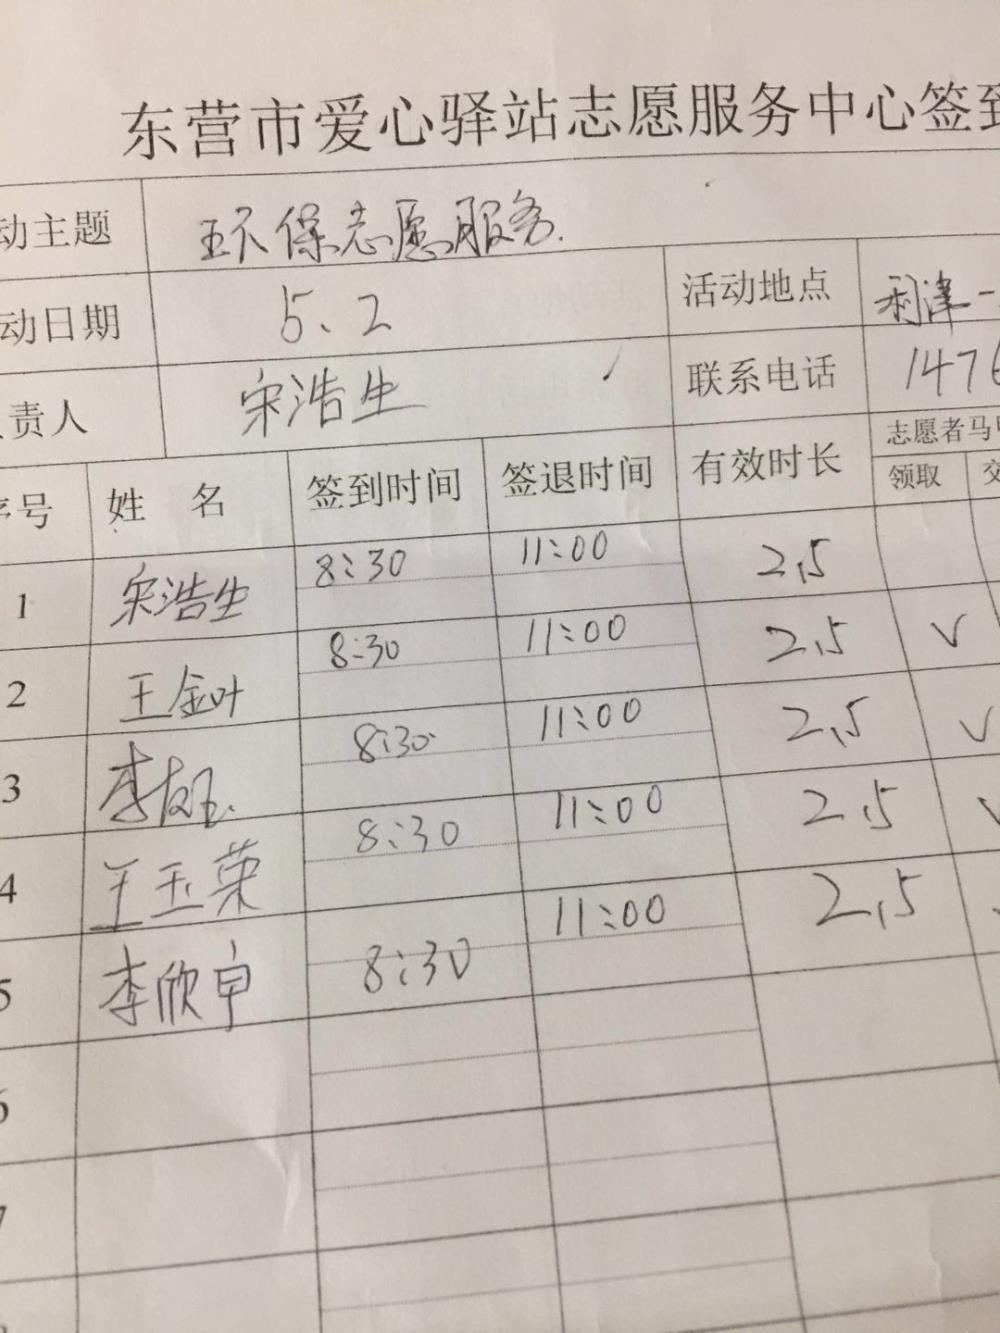 东营市爱心驿站志愿服务中心签到
动主题 环保志愿服务.
动日期 5.2 活动地点 利津一
责人 宋浩生 联系电话 1476
序号 姓 名 签到时间 签退时间 有效时长 志愿者马甲
领取 交
1 宋浩生 8:30 11:00 2.5
2 王金叶 8:30 11:00 2.5 √
3 李 8:30 11:00 2.5 √
4 王玉荣 8:30 11:00 2.5 √
5 李欣卓 8:30 11:00 2.5
6
7